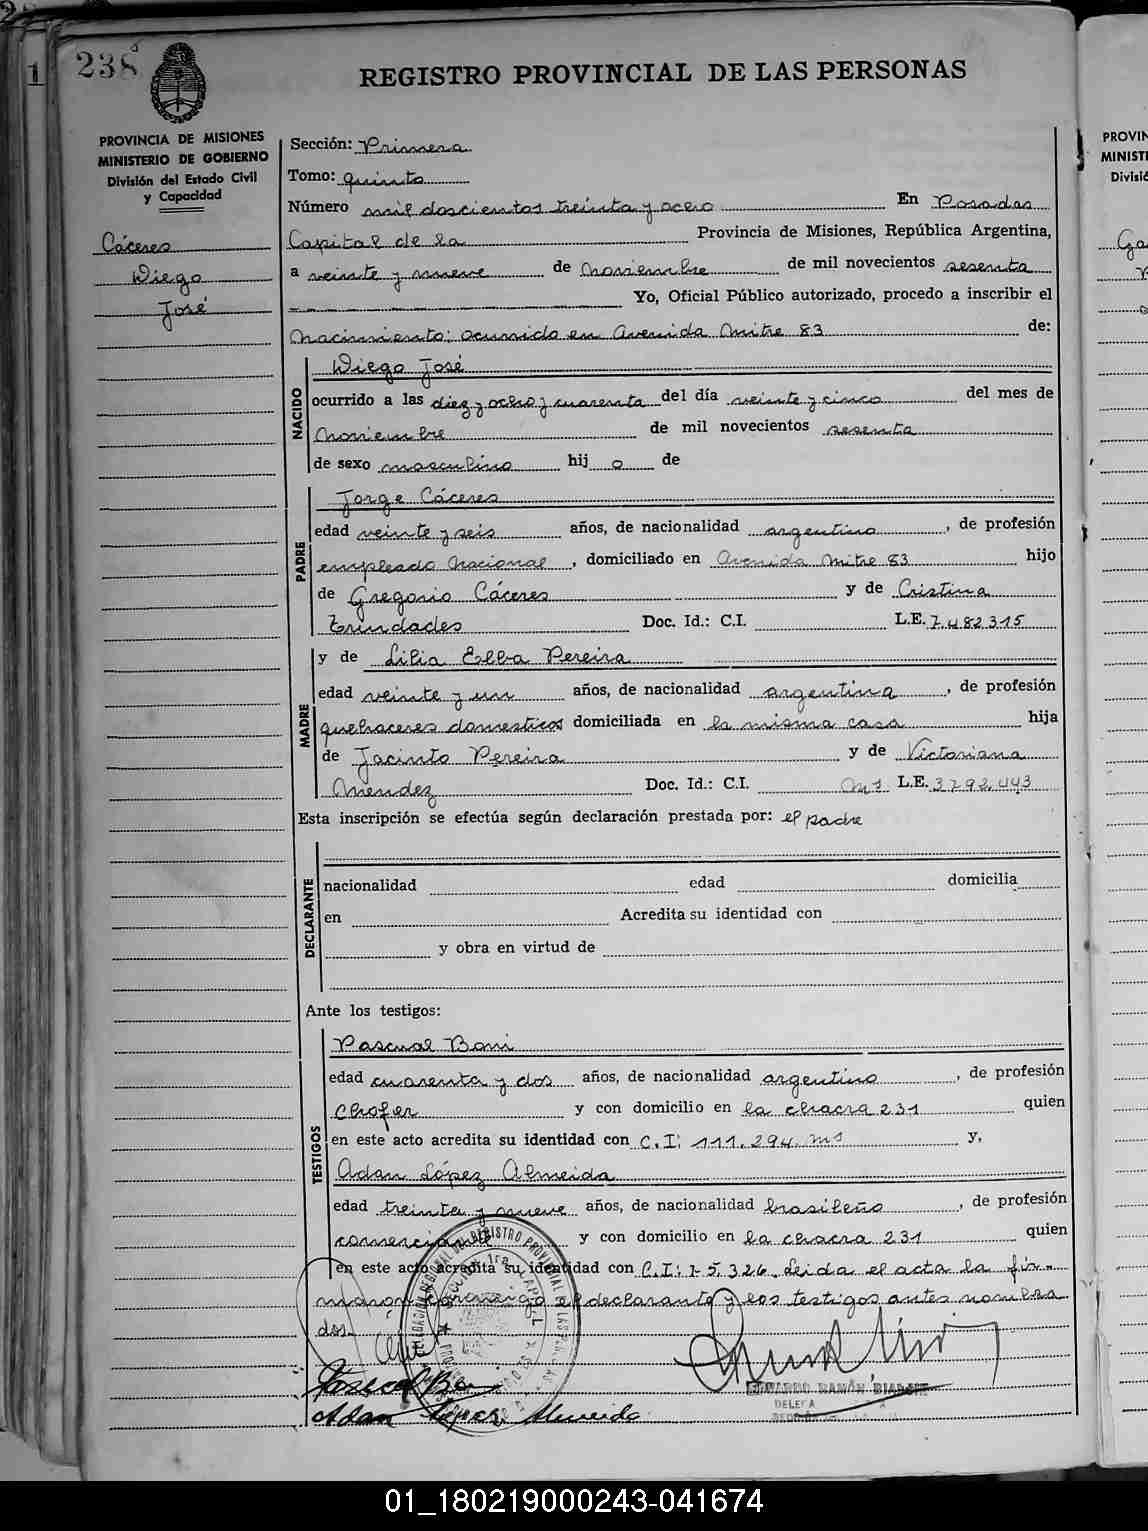 238
REGISTRO PROVINCIAL DE LAS PERSONAS
PROVINCIA DE MISIONES
MINISTERIO DE GOBIERNO
División del Estado Civil
y Capacidad
Cáceres
Diego
José
Sección: Primera
Tomo: quinto
Número mil doscientos treinta y ocho En Posadas
Capital de la Provincia de Misiones, República Argentina,
a veinte y nueve de noviembre de mil novecientos sesenta
Yo, Oficial Público autorizado, procedo a inscribir el
nacimiento: ocurrido en Avenida Mitre 83 de:
NACIDO
Diego José
ocurrido a las diez y ocho y cuarenta del día veinte y cinco del mes de
noviembre de mil novecientos sesenta
de sexo masculino hij o de
PADRE
Jorge Cáceres
edad veinte y seis años, de nacionalidad argentino, de profesión
empleado nacional, domiciliado en Avenida Mitre 83 hijo
de Gregorio Cáceres y de Cristina
Trindades Doc. Id.: C.I. L.E. 7.482.315
MADRE
y de Lilia Elba Pereira
edad veinte y un años, de nacionalidad argentina, de profesión
quehaceres domesticos domiciliada en la misma casa hija
de Jacinto Pereira y de Victoriana
Mendez Doc. Id.: C.I. Ms L.E. 3792.443
Esta inscripción se efectúa según declaración prestada por: el padre
DECLARANTE
nacionalidad edad domicilia
en Acredita su identidad con
y obra en virtud de
Ante los testigos:
TESTIGOS
Pascual Boni
edad cuarenta y dos años, de nacionalidad argentino, de profesión
chofer y con domicilio en la chacra 231 quien
en este acto acredita su identidad con C.I: 111.294. Ms y,
Adan López Almeida
edad treinta y nueve años, de nacionalidad brasileño, de profesión
comerciante y con domicilio en la chacra 231 quien
en este acto acredita su identidad con C.I: 15.326. Leida el acta la fir-
maron conmigo el declarante y los testigos antes nombra
dos.
Adan López Almeida
EDUARDO RAMÓN
01_180219000243-041674